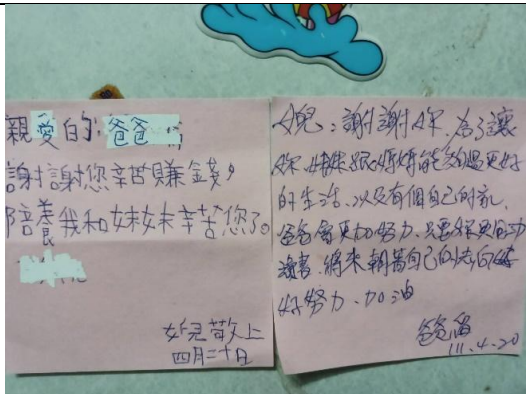 親愛的:爸爸
謝謝您辛苦賺錢,
陪養我和妹妹辛苦您了。
女兒敬上
四月二十日
女兒:謝謝妳,為了讓
妳、妹妹跟媽媽能夠過更好
的生活,以及有個自己的家,
爸爸會更加努力,只要妳更用功
讀書,將來朝著自己的方向
好努力、加油
爸爸留
111.4.20